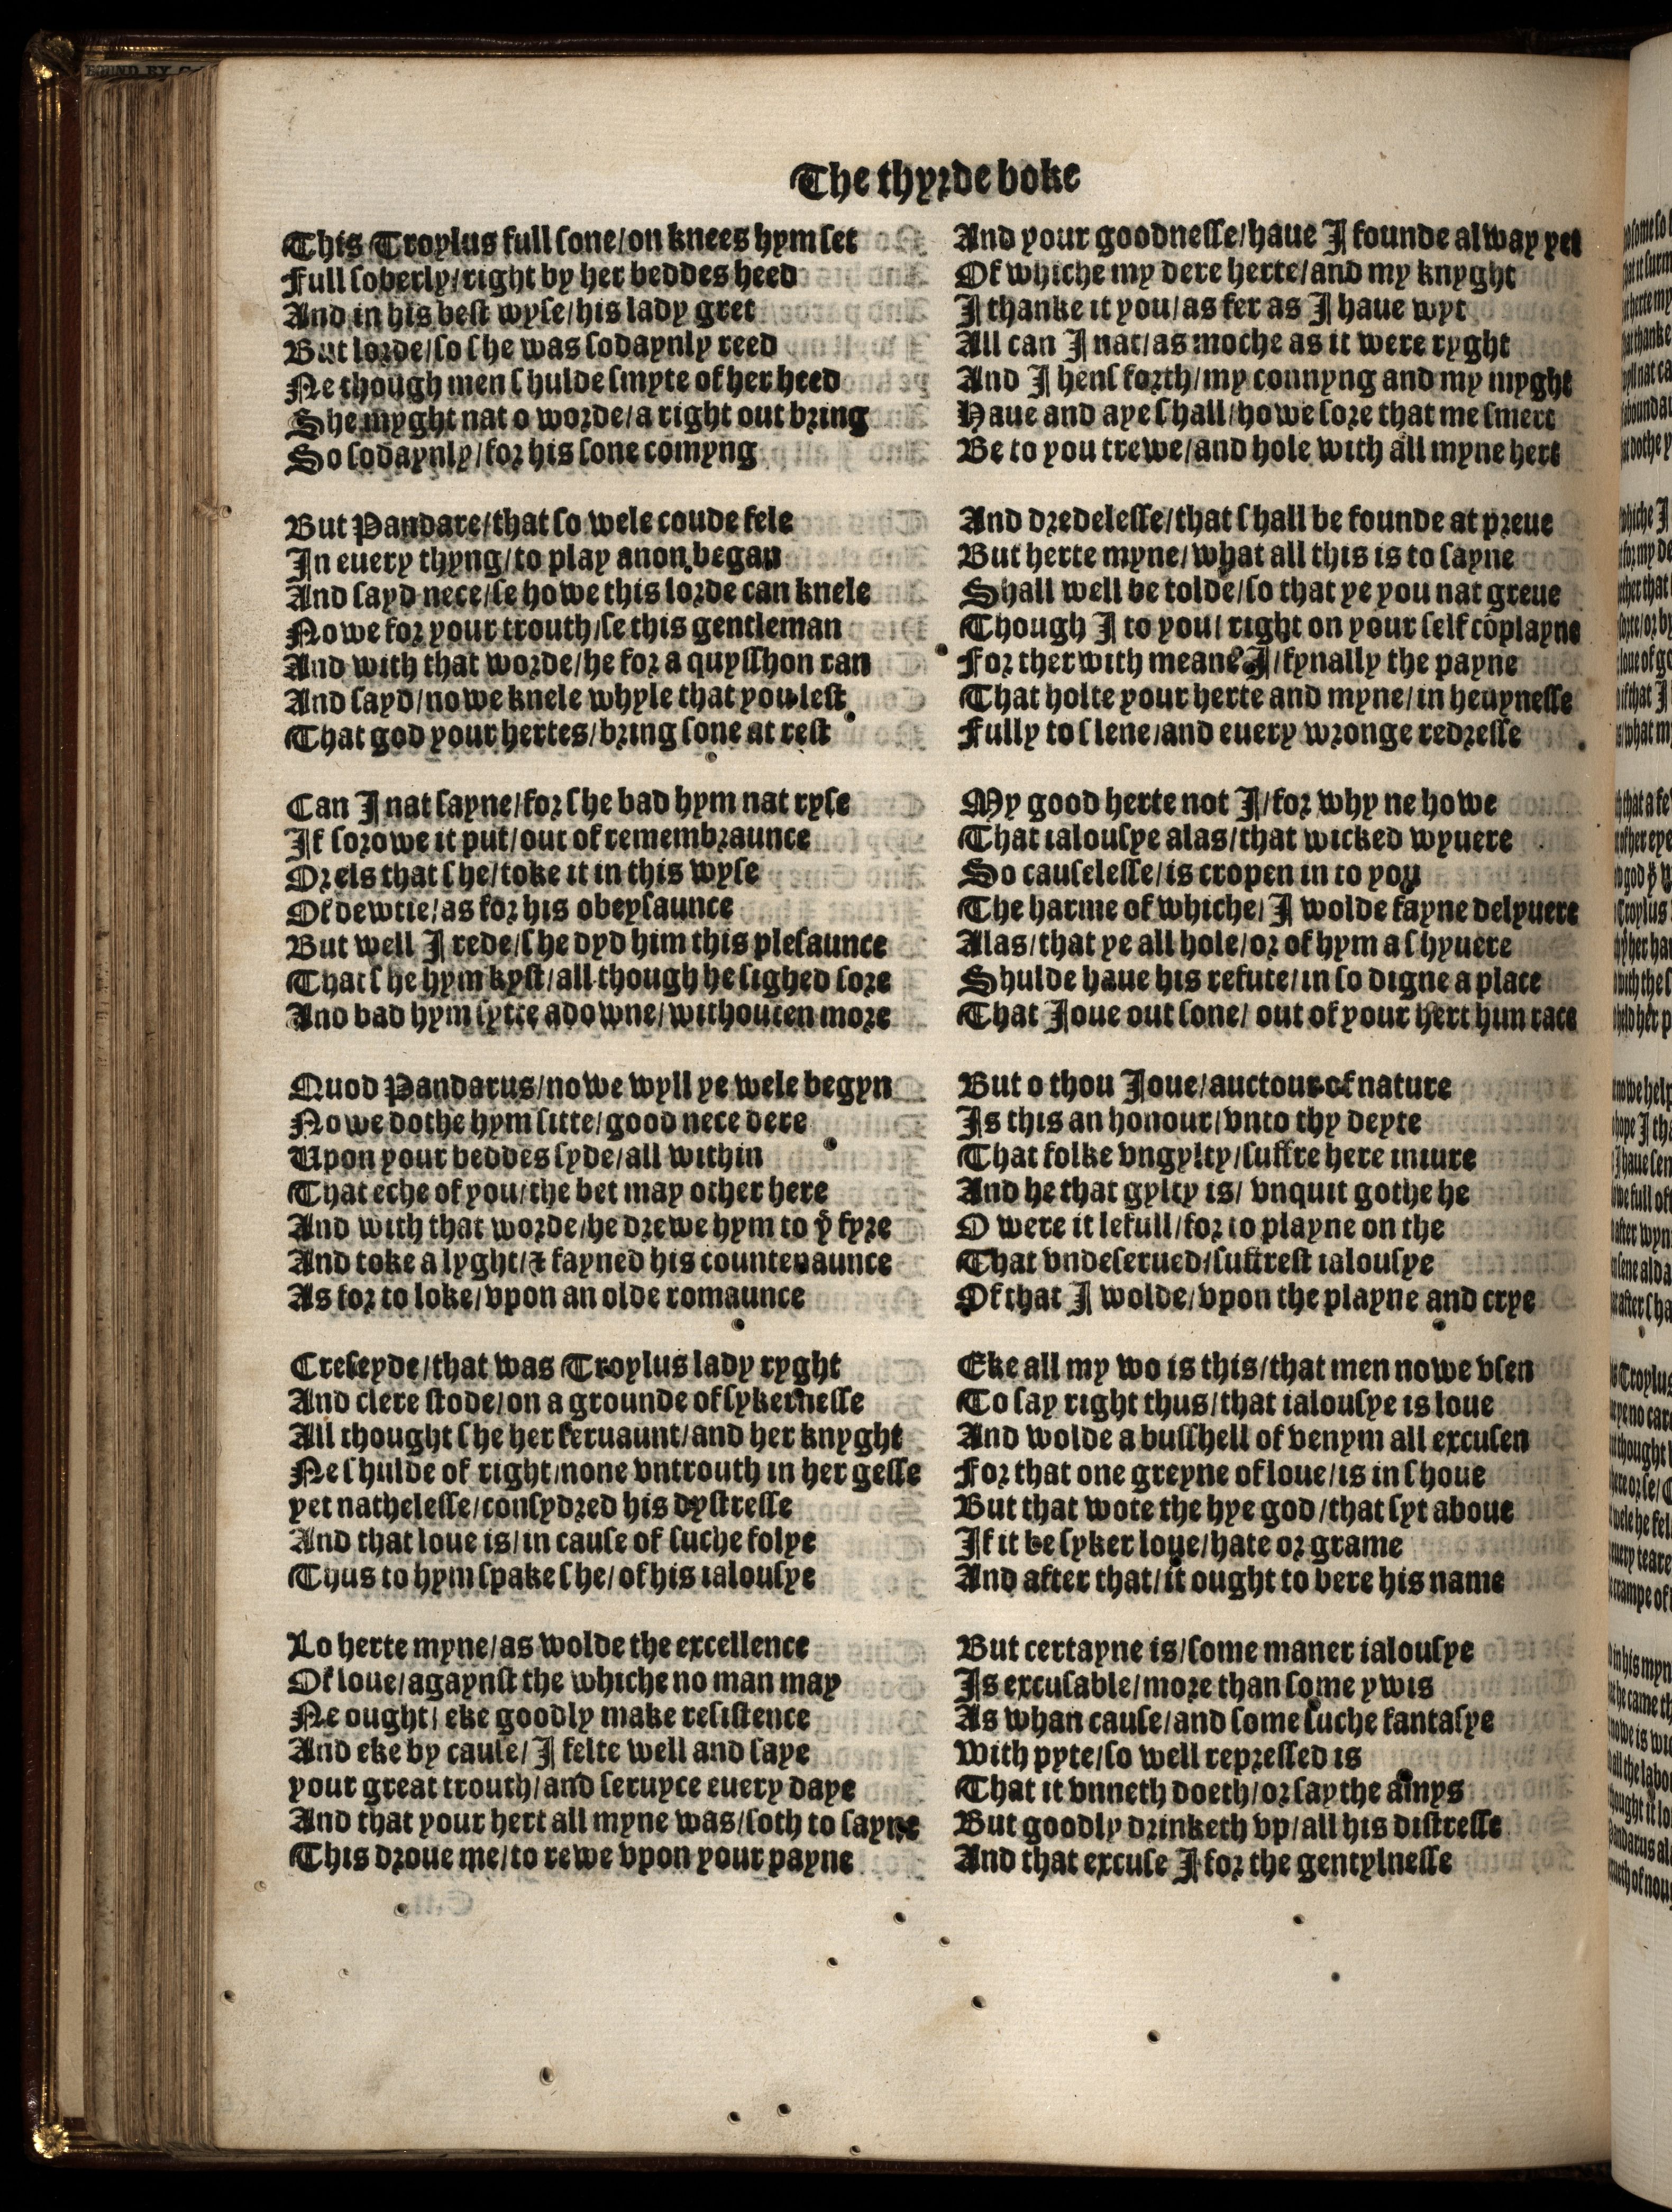 The thyrde boke
This Troylus full sone/on knees hym set
Full soberly/right by her beddes heed
And in his best wyse/his lady gret
But lorde/so she was sodaynly reed
Ne though men shulde smyte of her heed
She myght nat o worde/a right out bring
So sodaynly/for his sone comyng
But Pandare/that so wele coude fele
In euery thyng/to play anon began
And sayd nece/se howe this lorde can knele
Nowe for your trouth/se this gentleman
And with that worde/he for a quysshon ran
And sayd/nowe knele whyle that you lest
That god your hertes/bring sone at rest
Can I nat sayne/for she bad hym nat ryse
If sorowe it put/out of remembraunce
Or els that she/toke it in this wyse
Of dewtie/as for his obeysaunce
But well I rede/she dyd him this plesaunce
That she hym kyst/all though he sighed sore
And bad hym sytte adowne/withouten more
Quod Pandarus/nowe wyll ye wele begyn
Nowe dothe hym sitte/good nece dere
Upon your beddes syde/all within
That eche of you/the bet may other here
And with that worde/he drewe hym to yͤ fyre
And toke a lyght/⁊ fayned his countenaunce
As for to loke/vpon an olde romaunce
Creseyde/that was Troylus lady ryght
And clere stode/on a grounde of sykernesse
All thought she her seruaunt/and her knyght
Ne shulde of right/none vntrouth in her gesse
yet nathelesse/consydred his dystresse
And that loue is/in cause of suche folye
Thus to hym spake she/of his ialousye
Lo herte myne/as wolde the excellence
Of loue/agaynst the whiche no man may
Ne ought/eke goodly make resistence
And eke by cause/I felte well and saye
your great trouth/and seruyce euery daye
And that your hert all myne was/soth to sayne
This droue me/to rewe vpon your payne
And your goodnesse/haue I founde alway yet
Of whiche my dere herte/and my knyght
I thanke it you/as fer as I haue wyt
All can I nat/as moche as it were ryght
And I hens forth/my connyng and my myght
Haue and aye shall/howe sore that me smert
Be to you trewe/and hole with all myne hert
And dredelesse/that shall be founde at preue
But herte myne/what all this is to sayne
Shall well be tolde/so that ye you nat greue
Though I to you/right on your self cōplayne
For therwith meane I/fynally the payne
That holte your herte and myne/in heuynesse
Fully to slene/and euery wronge redresse
My good herte not I/for why ne howe
That ialousye alas/that wicked wyuere
So causelesse/is cropen in to you
The harme of whiche/I wolde fayne delyuere
Alas/that ye all hole/or of hym a shyuere
Shulde haue his refute/in so digne a place
That Ioue out sone/out of your hert hun race
But o thou Ioue/auctour of nature
Is this an honour/vnto thy deyte
That folke vngylty/suffre here iniure
And he that gylty is/vnquit gothe he
O were it lefull/for to playne on the
That vndeserued/suffrest ialousye
Of that I wolde/vpon the playne and crye
Eke all my wo is this/that men nowe vsen
To say right thus/that ialousye is loue
And wolde a busshell of venym all excusen
For that one greyne of loue/is in shoue
But that wote the hye god/that syt aboue
If it be syker loue/hate or grame
And after that/it ought to bere his name
But certayne is/some maner ialousye
Is excusable/more than some ywis
As whan cause/and some suche fantasye
With pyte/so well repressed is
That it vnneth doeth/or saythe amys
But goodly drinketh vp/all his distresse
And that excuse I for the gentylnesse